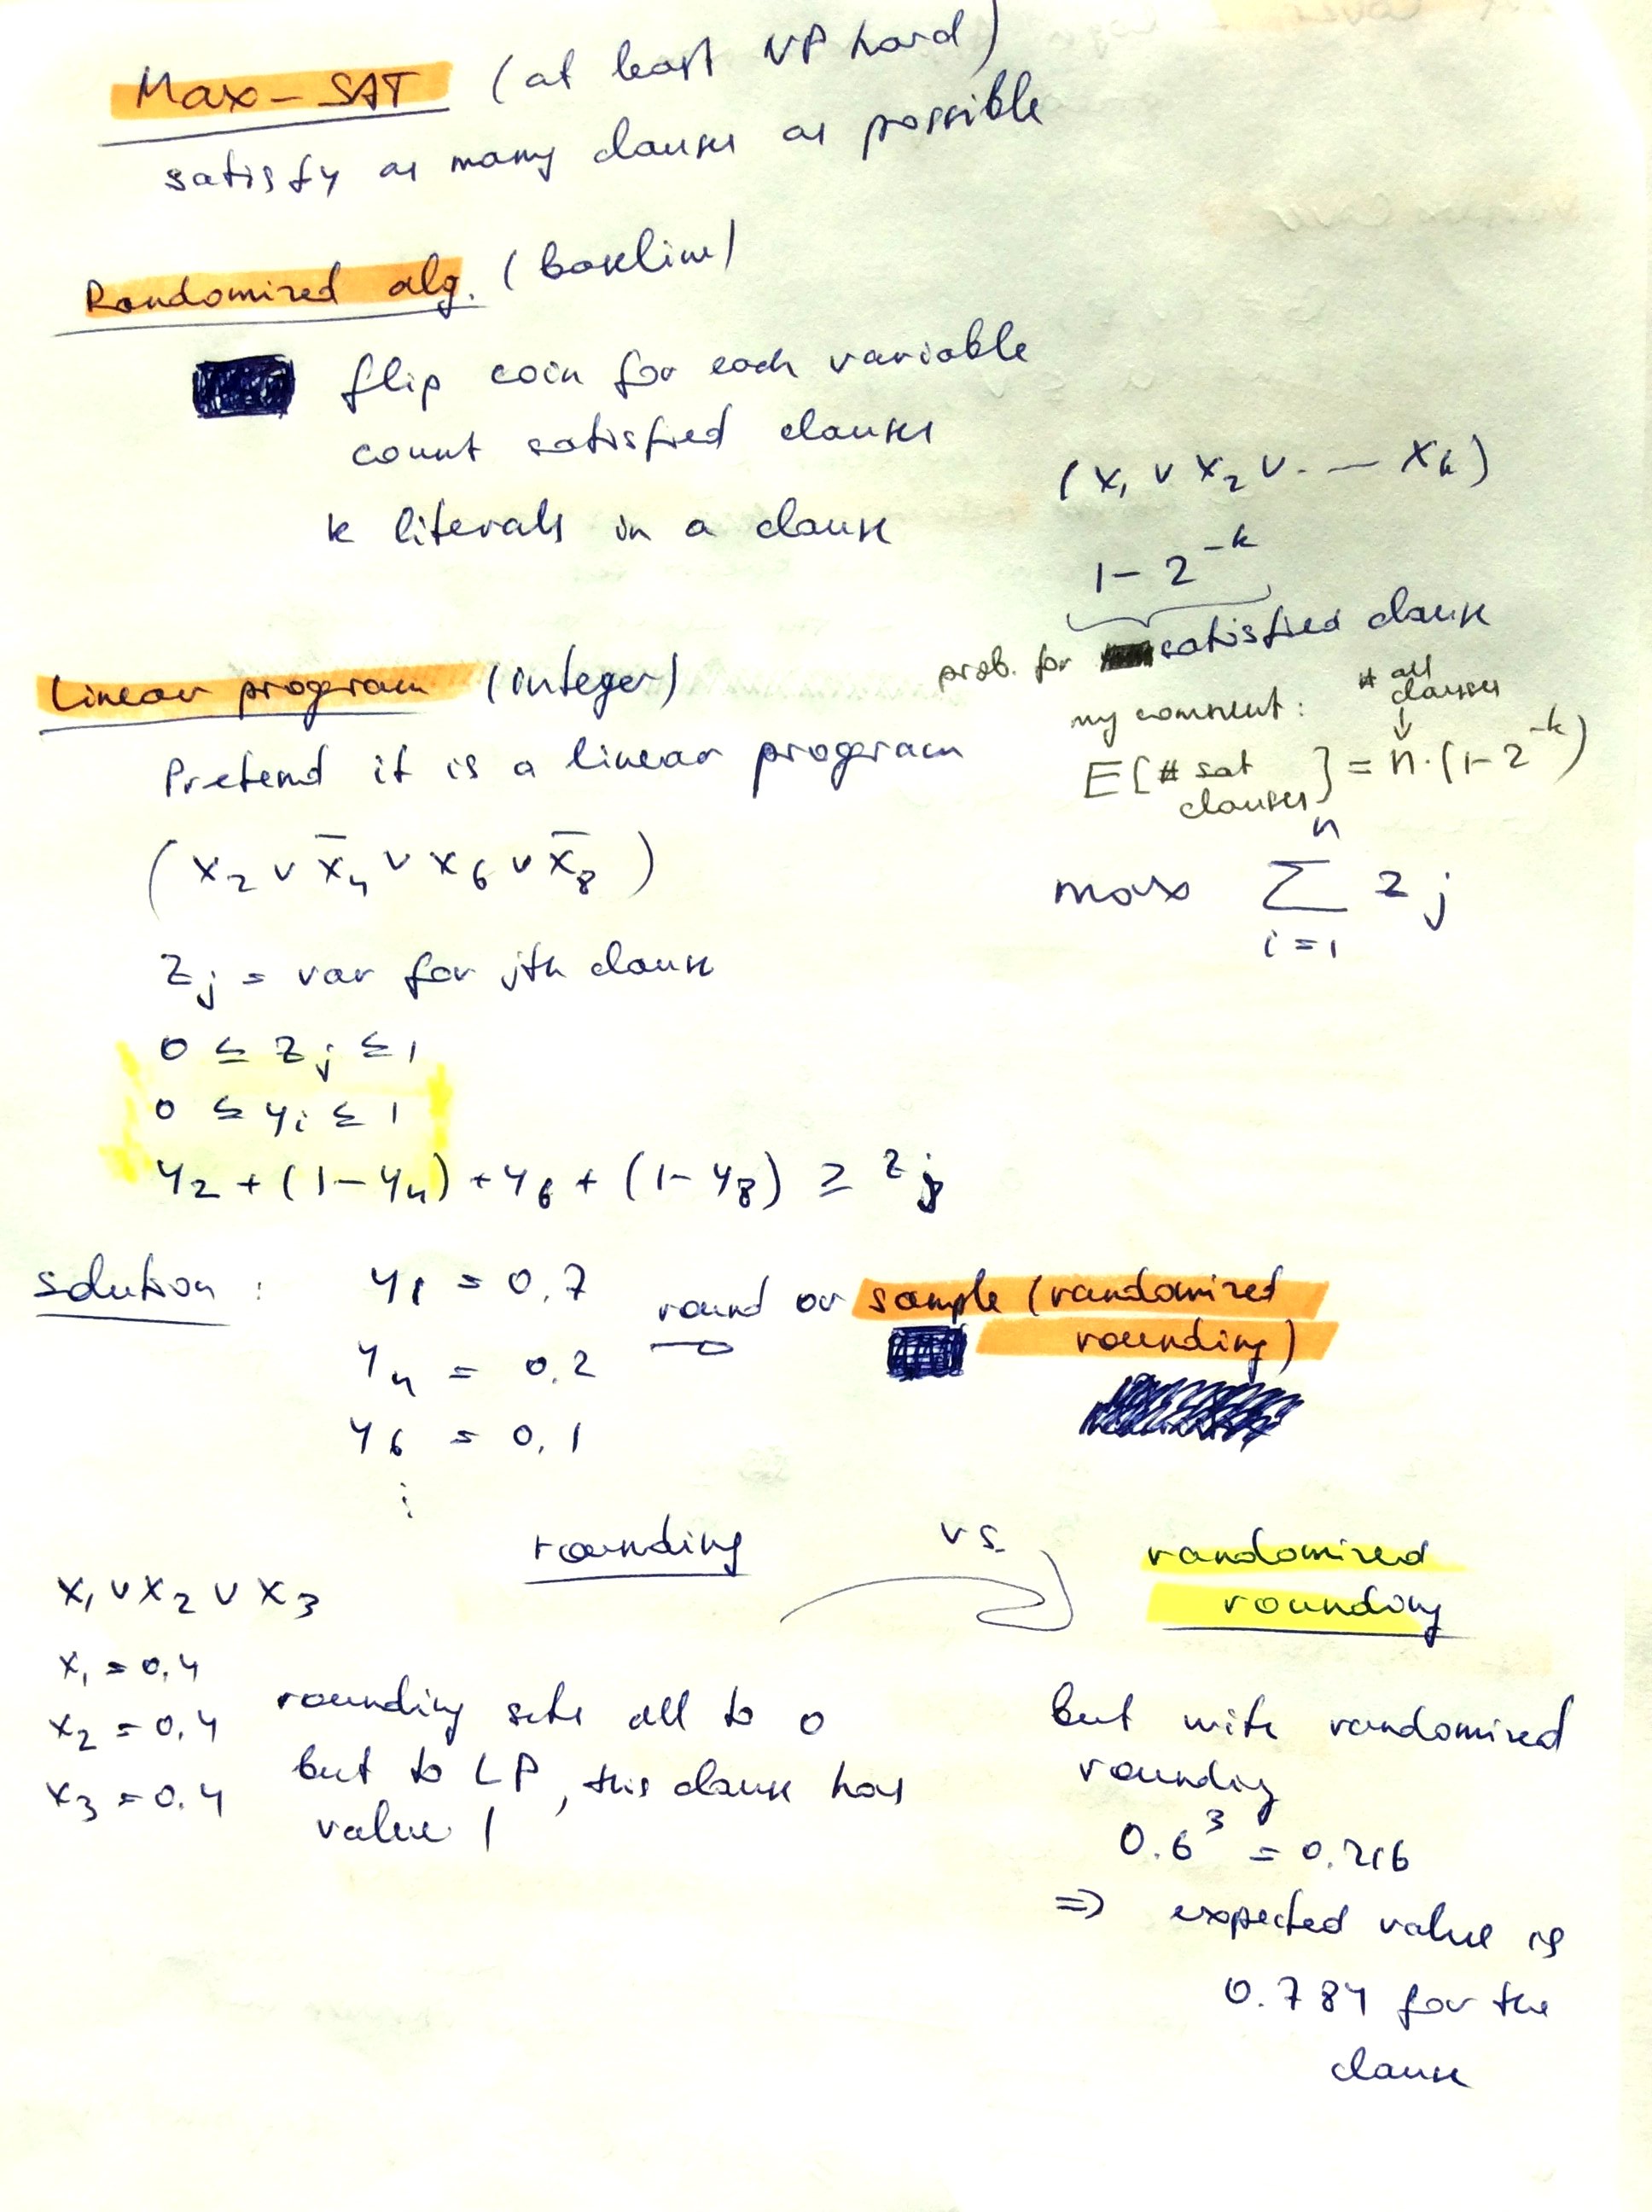 Max-SAT (at least NP hard)
satisfy as many clauses as possible
Randomized alg. (baseline)
flip coin for each variable
count satisfied clauses
k literals in a clause
(x₁ ∨ x₂ ∨ . — xₖ)
1 - 2⁻ᵏ
prob. for satisfied clause
my comment:
# all
clauses
↓
E[# sat clauses] = n·(1-2⁻ᵏ)
Linear program (integer)
Pretend it is a linear program
(x₂ ∨ x̄₄ ∨ x₆ ∨ x̄₈)
max ∑ᵢ₌₁ⁿ zⱼ
zⱼ = var for jth clause
0 ≤ zⱼ ≤ 1
0 ≤ yᵢ ≤ 1
y₂ + (1-y₄) + y₆ + (1-y₈) ≥ zⱼ
solution: y₁ = 0,7
y₄ = 0,2
y₆ = 0,1
⋮
round or sample (randomized
rounding)
rounding vs. randomized
rounding
x₁ ∨ x₂ ∨ x₃
x₁ = 0.4
x₂ = 0.4
x₃ = 0.4
rounding sets all to 0
but to LP, this clause has
value 1
but with randomized
rounding
0.6³ = 0.216
⇒ expected value is
0.784 for the
clause